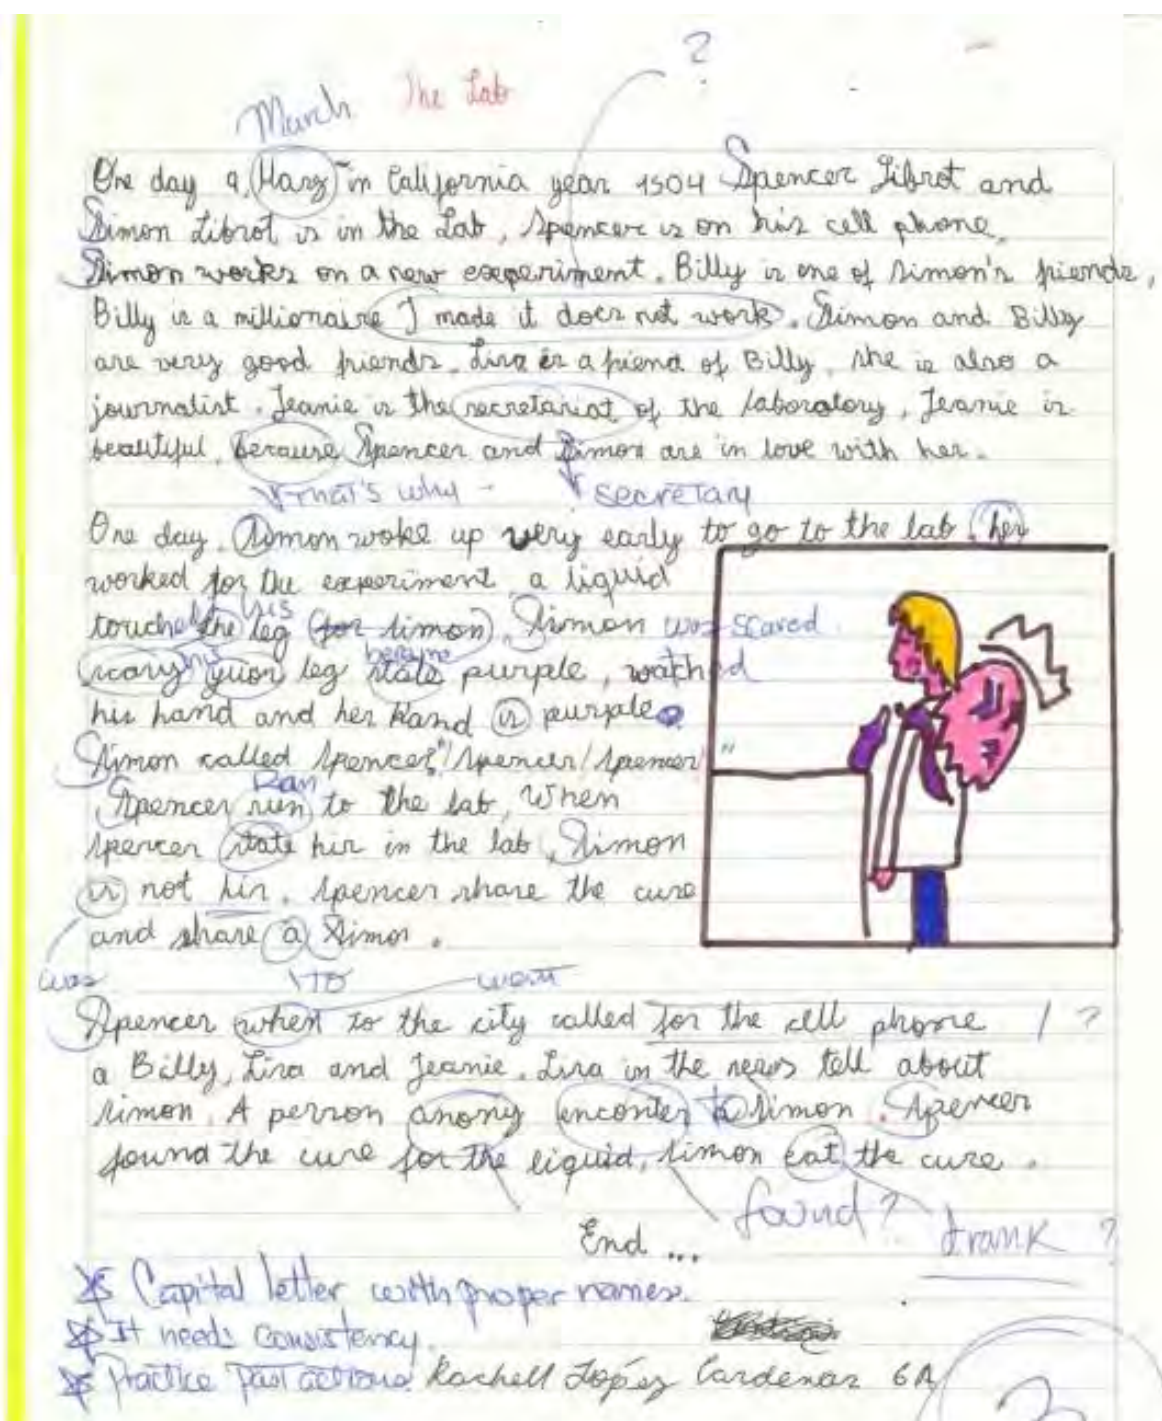 ?
March The Lab
One day 9, Marz in California year 1504 Spencer Librot and
Simon Librot is in the Lab, Spencer is on his cell phone,
Simon works on a new experiment. Billy is one of simon's friends,
Billy is a millionaire I made it does not work. Simon and Billy
are very good friends. Lisa is a friend of Billy, she is also a
journalist. Jeanie is the secretariat of the laboratory, Jeanie is
beautiful, because Spencer and Simon are in love with her.
that's why secretary
One day, Simon woke up very early to go to the lab, her
worked for the experiment, a liquid
his
touched the leg (for simon), Simon was scared
his became
scary leg state purple, watched
his hand and her hand is purple
Simon called spencer "spencer/spencer/spencer"
Ran
Spencer run to the lab, when
spencer state his in the lab, Simon
is not his. spencer share the cure
and share a Simon.
was to went
Spencer when to the city called for the cell phone / ?
a Billy, Lisa and Jeanie. Lisa in the news tell about
simon. A person anony enconter to simon. Spencer
found the cure for the liquid, simon eat the cure.
found? drank ?
End ...
Capital letter with proper names.
It needs consistency.
Practice Past actions Rachell López Cardenas 6A